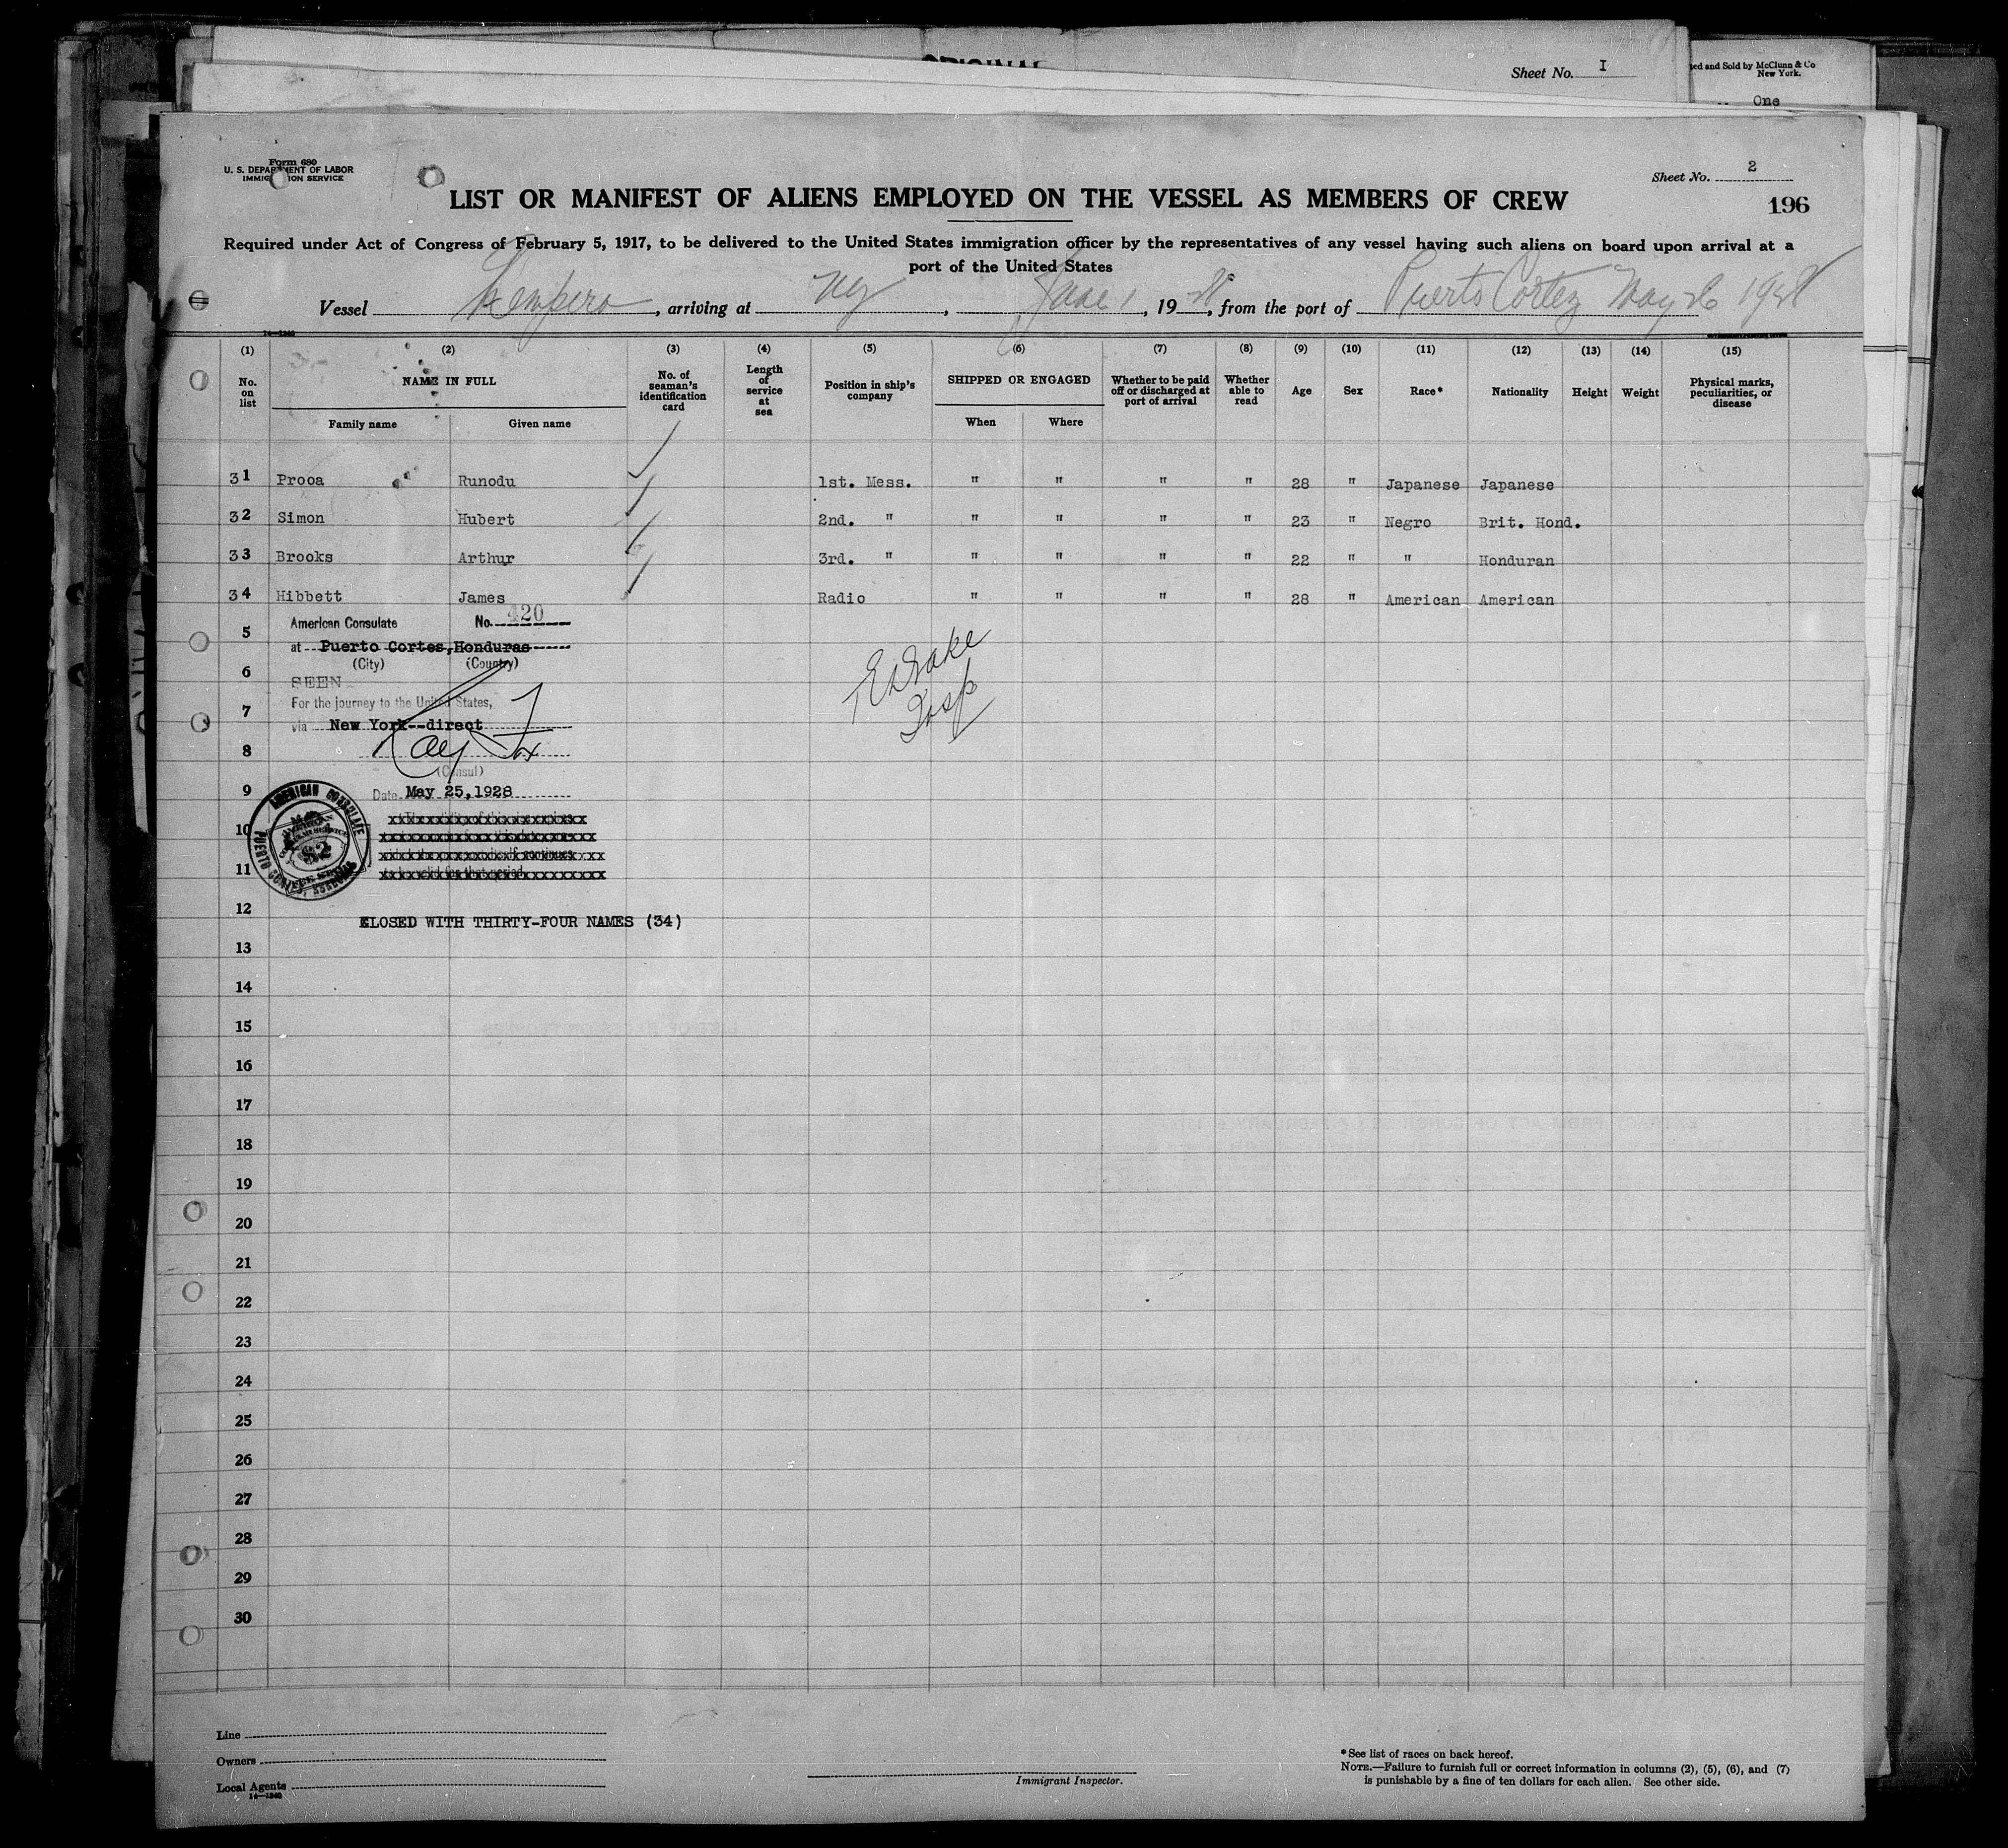 Sheet No. I
ed and Sold by McClunn & Co
New York.
One
Form 680
U. S. DEPARTMENT OF LABOR
IMMIGRATION SERVICE
Sheet No. 2
LIST OR MANIFEST OF ALIENS EMPLOYED ON THE VESSEL AS MEMBERS OF CREW
196
Required under Act of Congress of February 5, 1917, to be delivered to the United States immigration officer by the representatives of any vessel having such aliens on board upon arrival at a
port of the United States
Vessel , arriving at NY , June 1 , 19 28, from the port of Puerto Cortez May 26 1928
14—1240
(1) (2) (3) (4) (5) (6) (7) (8) (9) (10) (11) (12) (13) (14) (15)
No. on list NAME IN FULL No. of seaman's identification card Length of service at sea Position in ship's company SHIPPED OR ENGAGED Whether to be paid off or discharged at port of arrival Whether able to read Age Sex Race* Nationality Height Weight Physical marks, peculiarities, or disease
Family name Given name When Where
31 Prooa Runodu 1st. Mess. " " " " 28 " Japanese Japanese
32 Simon Hubert 2nd. " " " " " 23 " Negro Brit. Hond.
33 Brooks Arthur 3rd. " " " " " 22 " " Honduran
34 Hibbett James Radio " " " " 28 " American American
American Consulate No. 420
5
at Puerto Cortes, Honduras
(City) (Country)
6
SEEN
For the journey to the United States,
7
via New York--direct
8
(Consul)
9
Date May 25, 1928
Insp
10
11
AMERICAN CONSULATE
PUERTO CORTES, HONDURAS
12
CLOSED WITH THIRTY-FOUR NAMES (34)
13
14
15
16
17
18
19
20
21
22
23
24
25
26
27
28
29
30
Line
Owners
Local Agents
14—1240
Immigrant Inspector.
*See list of races on back hereof.
NOTE.—Failure to furnish full or correct information in columns (2), (5), (6), and (7)
is punishable by a fine of ten dollars for each alien. See other side.